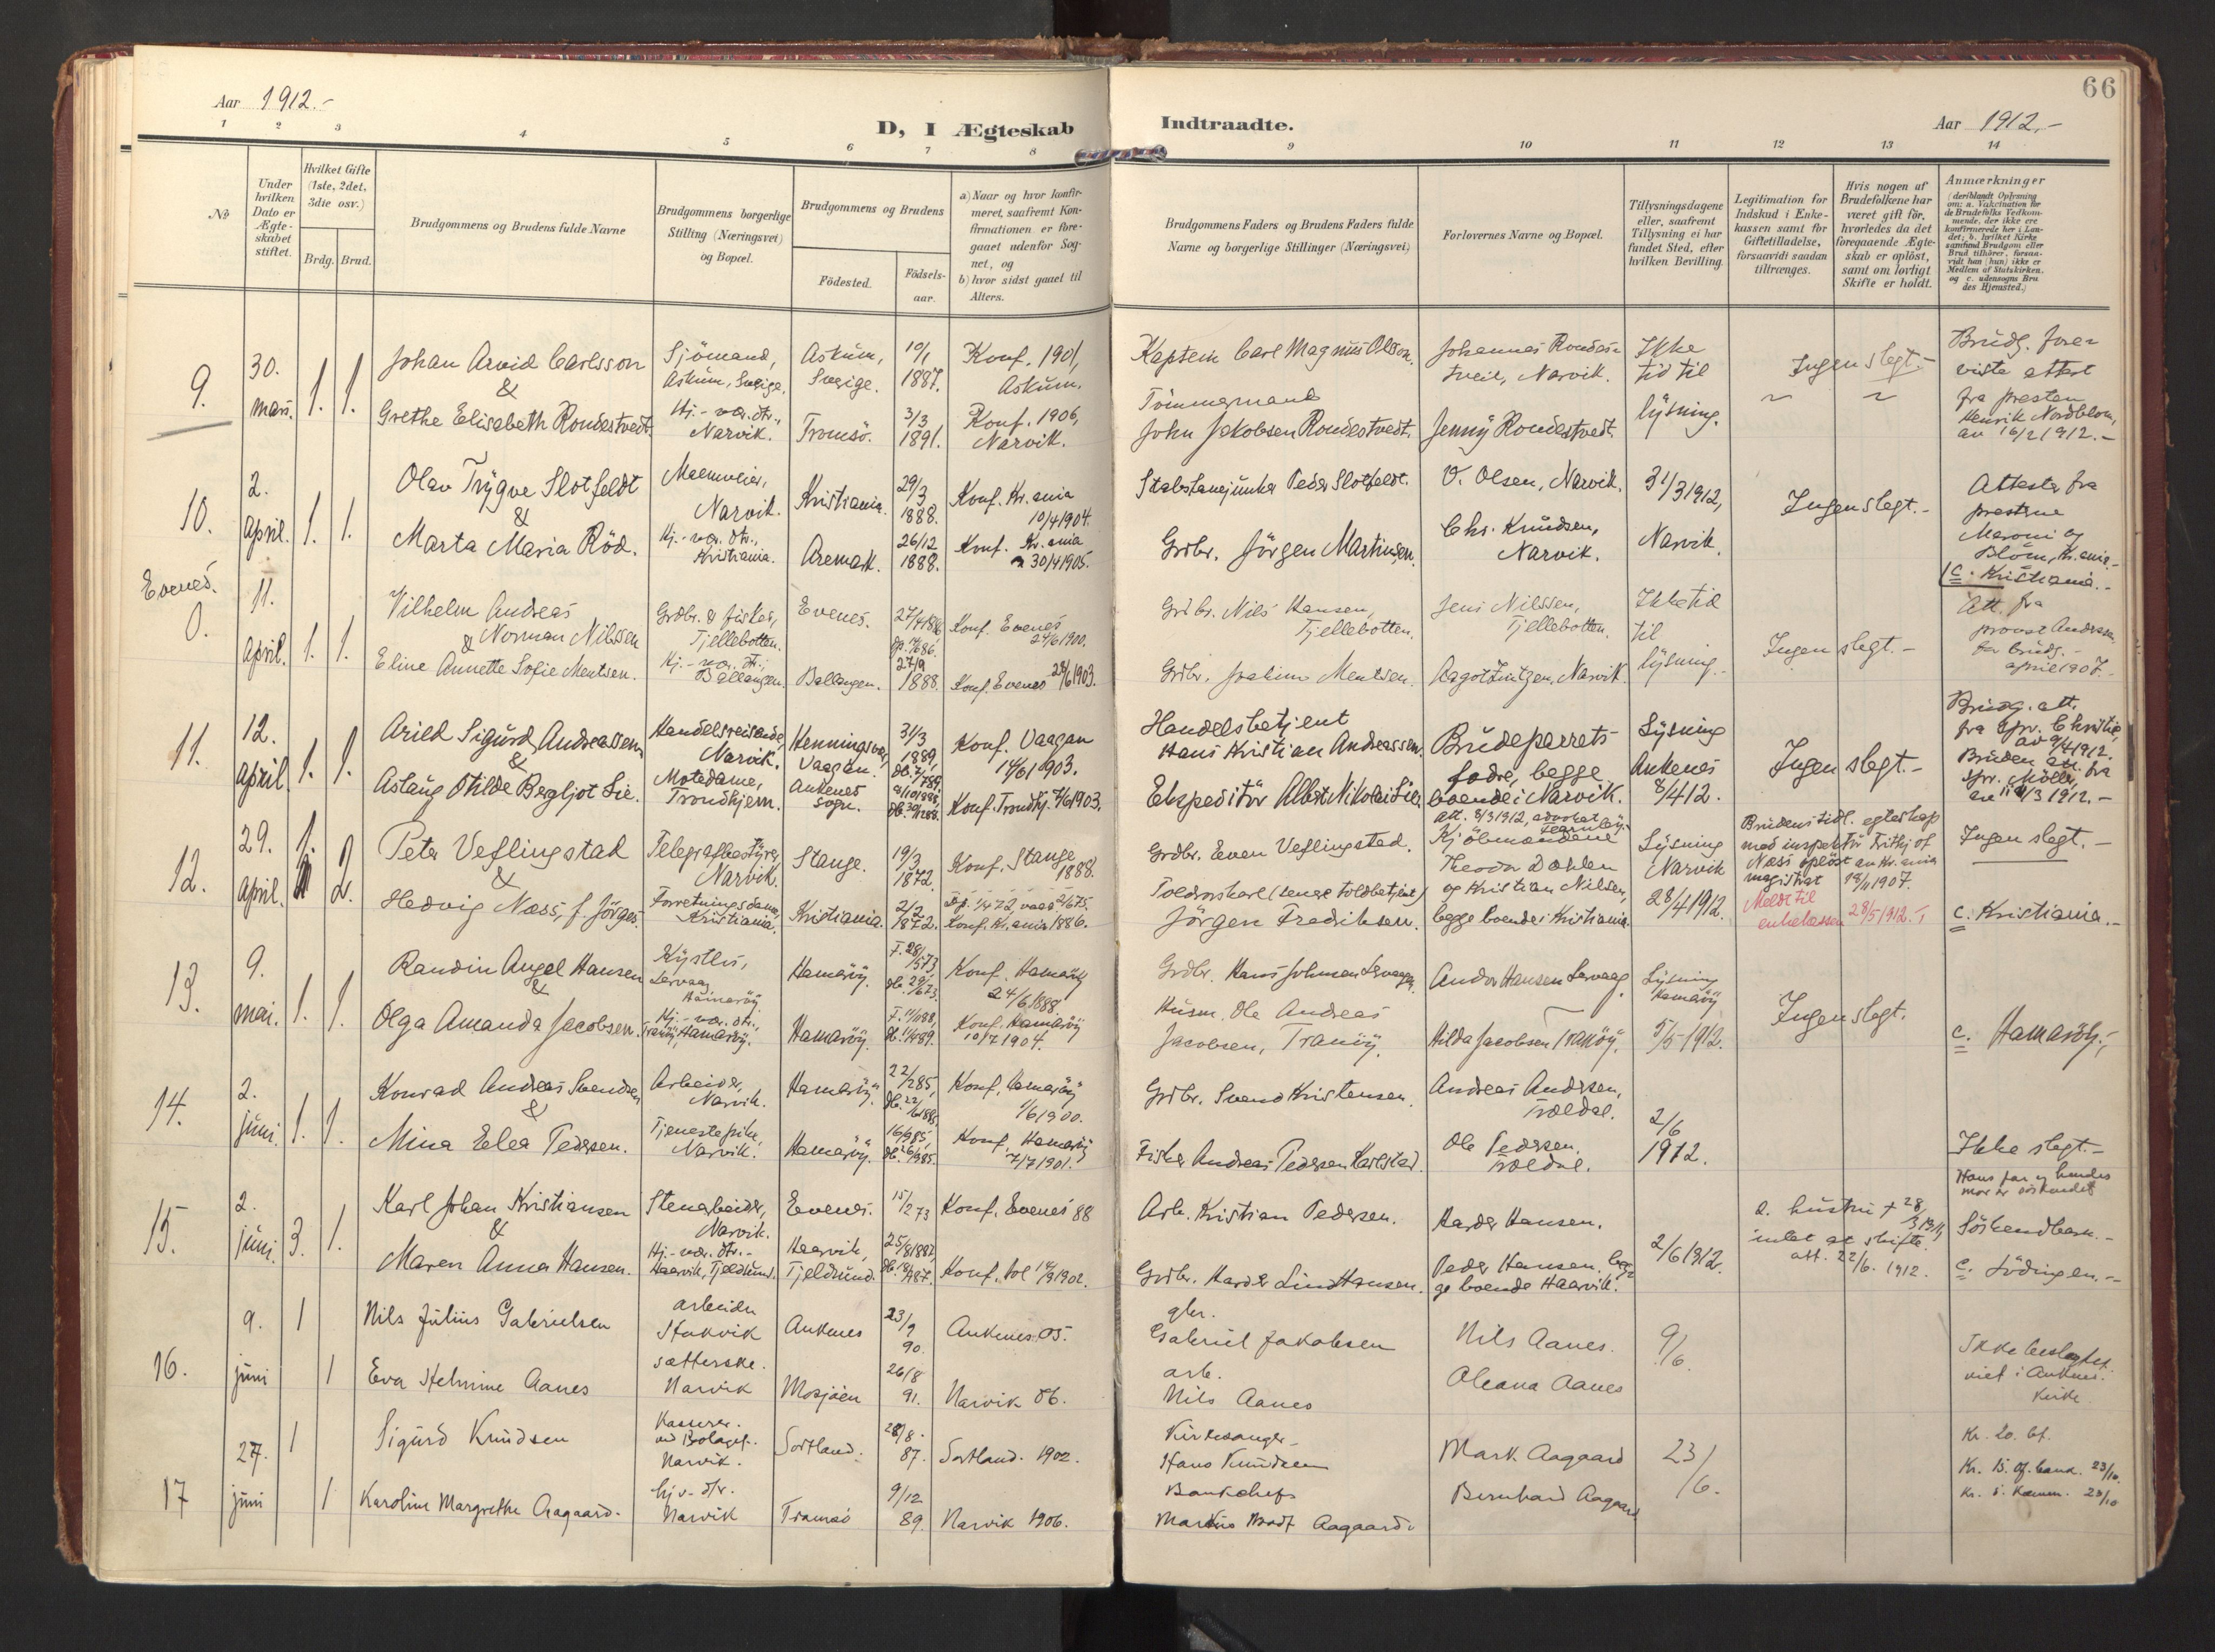 66
Aar 1912.-
D, I Ægteskab
Indtraadte.
Aar 1912,-
1 2 3 4 5 6 7 8 9 10 11 12 13 14
No
Under hvilken Dato er Ægteskabet stiftet.
Hvilket Gifte (1ste, 2det, 3die osv.)
Brdg. Brud.
Brudgommens og Brudens fulde Navne
Brudgommens borgerlige Stilling (Næringsvei) og Bopæl.
Brudgommens og Brudens
Födested.
Födsels-aar.
a) Naar og hvor konfirmeret, saafremt Konfirmationen er foregaaet udenfor Sognet, og
b) hvor sidst gaaet til Alters.
Brudgommens Faders og Brudens Faders fulde Navne og borgerlige Stillinger (Næringsvei)
Forlovernes Navne og Bopæl.
Tillysningsdagene eller, saafremt Tillysning ei har fundet Sted, efter hvilken Bevilling.
Legitimation for Indskud i Enkekassen samt for Giftetilladelse, forsaavidt saadan tiltrænges.
Hvis nogen af Brudefolkene har været gift för, hvorledes da det foregaaende Ægteskab er oplöst, samt om lovligt Skifte er holdt.
Anmærkninger
(deriblandt Oplysning om: a. Vakcination for de Brudefolks Vedkommende, der ikke ere konfirmerede her i Landet; b. hvilket Kirkesamfund Brudgom eller Brud tilhörer, forsaavidt han (hun) ikke er Medlem af Statskirken, og c. udensogns Brudes Hjemsted.)
9. 30. mars. 1. 1.
Johan Arvid Carlsson
&
Grethe Elisabeth Rondestvedt.
Sjömand, Askum, Sverige.
Hj.-vær. dtr., Narvik.
Askum, Sverige.
Tromsö.
10/1 1887.
3/3 1891.
Konf. 1901, Askum.
Konf. 1906, Narvik.
Kaptein Carl Magnus Olsson.
Tömmermand
John Jakobsen Rondestvedt.
Johannes Rondestveit, Narvik.
Jenny Rondestvedt.
Ikke tid til lysning.
Ingen slegt.-
Brudg. foreviste attest fra presten Henrik Nordblom, av 16/2 1912.-
10. 2. april. 1. 1.
Olav Trygve Slotfeldt
&
Marta Maria Röd.
Narvik.
Hj.-vær. dtr., Kristiania.
Kristiania.
Aremark.
29/3 1888.
26/12 1888.
Konf. Kr.ania 10/4 1904.
Konf. Kr.ania 30/4 1905.
Peder Slotfeldt.
Grdbr. Jörgen Martinsen.
V. Olsen, Narvik.
Chr. Knudsen, Narvik.
31/3 1912, Narvik.
Ingen slegt.-
Attester fra prestene Meroni og Blom, Kr.ania.-
c. Kristiania.-
Evenes.
0. 11. april. 1. 1.
Vilhelm Andreas Norman Nilssen
&
Eline Annette Sofie Mentsen.
Grdbr. & fisker, Tjellebotten.
Hj.-vær. dtr., Ballangen.
Evenes.
Ballangen.
27/9 1888.
Konf. Evenes 24/6 1900.
Konf. Evenes 28/6 1903.
Grdbr. Nils Hansen, Tjellebotten.
Grdbr. Joakim Mentsen.
Jens Nilssen, Tjellebotten.
Narvik.
Ikke tid til lysning.-
Ingen slegt.-
Att. fra provst
for brudg.-
april 1907.-
11. 12. april 1. 1.
Arild Sigurd Andreassen
&
Aslaug Otilde Bergljot Lie.
Handelsreisende, Narvik.
Motedame, Trondhjem.
Henningsvær, Vaagan.
Ankenes sogn.
31/3 1889,
Konf. Vaagan 14/6 1903.
Konf. Trondhj. 7/6 1903.
Handelsbetjent
Hans Kristian Andreassen.
Ekspeditör Albert Nikolai Lie.
Brudeparrets fædre, begge boende i Narvik.
Lysning Ankenes 8/4 12.
Ingen slegt.-
Brudg. att. fra spr.
av 9/4 1912.
Bruden att. fra spr. Möller,
av 11/3 1912.-
12. 29. april. 1. 2.
Peter Veflingstad
&
Hedvig Næss, f. Jörgens.
Telegrafbestyrer, Narvik.
Forretningsdame, Kristiania.
Stange.
Kristiania.
19/3 1872.
2/2 1872.
Konf. Stange 1888.
Konf. Kr.ania 1886.
Grdbr. Even Veflingstad.
Jörgen Fredriksen.
att. 8/3 1912, advokat
Kjöbmændene Theodor Dahlen og Kristian Nilsen, begge boende i Kristiania.
Lysning Narvik 28/4 1912.
Brudens tidl. egteskap med inspektör Fridtjof Næss oplöst av Kr.ania magistrat 18/11 1907.
Meldt til enkekassen 28/5 1912.
Ingen slegt.-
c. Kristiania.-
13. 9. mai. 1. 1.
Randin Angel Hansen
&
Olga Amanda Jacobsen.
Kystfis., Lervaag Hamaröy
Hj.-vær. dtr., Tranöy, Hamaröy.
Hamaröy.
Hamaröy.
Konf. Hamaröy 24/6 1888.
Konf. Hamaröy 10/7 1904.
Grdbr. Hans Johnsen Lervaag.
Husm. Ole Andreas Jacobsen, Tranöy.
Andor Hansen Lervaag.
Hilda Jacobsen Tranöy.
Lysning Hamaröy 5/5 1912.
Ingen slegt.
c. Hamaröy.-
14. 2. juni. 1. 1.
Konrad Andreas Svendsen
&
Mina Elea Pedersen.
Arbeider, Narvik.
Tjenestepike, Narvik.
Hamaröy.
Hamaröy.
Konf. Hamaröy 1/6 1900.
Konf. Hamaröy 7/7 1901.
Grdbr. Svend Kristensen.
Fisker Andreas Pedersen Karlstad.
Andreas Andersen,
Ole Pedersen.
2/6 1912.
Ikke slegt.-
15. 2. juni. 3. 1.
Karl Johan Kristiansen
&
Maren Anna Hansen.
Stenarbeider, Narvik.
Hj.-vær. dtr.- Haarvik, Tjeldsund.
Evenes.
Haarvik, Tjeldsund.
15/2 73
25/8 1887,
Konf. Evenes 88
Arb. Kristian Pedersen.
Grdbr. Harder Lind Hansen.
Harder Hansen.
Peder Hansen, begge boende Haarvik.
2/6 1912.
2. hustru † 28/3 1911, intet at skifte.
att. 22/6. 1912.
Hans far og hendes mor er söskendet
Söskendbarn.-
c. Lödingen.-
16. 9. juni 1 1
Nils Julius Gabrielsen
Eva Helmine Aanes
arbeider
sætterske.
Narvik
Ankenes
Mosjöen
23/9 90.
26/8 91.
Ankenes 05.
Narvik 06.
gbr.
Gabriel Jakobsen
arb.
Nils Aanes
Nils Aanes.
Oleana Aanes
9/6.
Ikke beslegtet. viet i Ankenes kirke.
17 27. juni 1 1
Sigurd Knudsen
Karoline Margrethe Aagaard.
Kasserer. ved Bolaget. Narvik.
hjv. dtr. Narvik
Sortland.
Tromsö
28/8. 87.
9/12 89.
Sortland. 1902.
Narvik 1906.
Kirkesanger
Hans Knudsen
Bankchef
Aagaard.
Mark. Aagaard
Bernhard Aagaard
23/6.
Kr. 20. bf.
23/10.
23/10